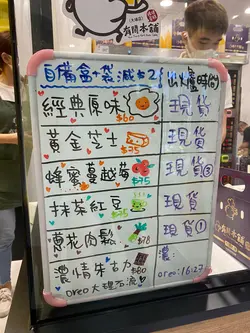 有間本舖
自備盒+袋減$2
出爐時間
經典原味 $60
現貨
黃金芝士 $25
現貨
蜂蜜蔓越莓 $75
現貨③
抹茶紅豆 $75
現貨
蔥花肉鬆 $78
現貨①
濃情朱古力 $80
濃:
oreo大理石流心
oreo:16:27